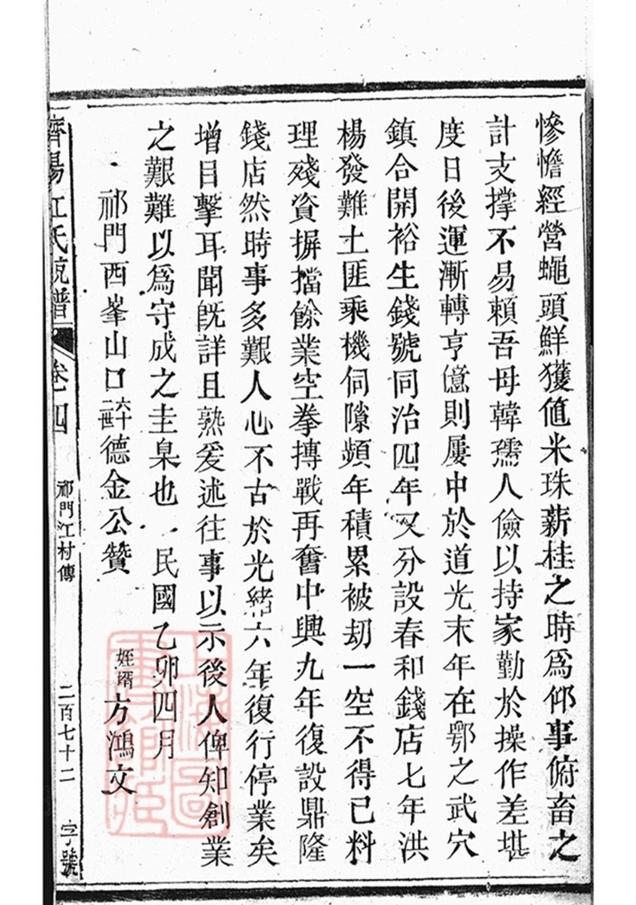 慘憺經營蠅頭鮮獲值米珠薪桂之時爲仰事俯畜之
計支撐不易賴吾母韓孺人儉以持家勤於操作差堪
度日後運漸轉亨億則屢中於道光末年在鄂之武穴
鎮合開裕生錢號同治四年又分設春和錢店七年洪
楊發難土匪乘機伺隙頻年積累被刧一空不得已料
理殘資摒擋餘業空拳搏戰再奮中興九年復設鼎隆
錢店然時事多艱人心不古於光緒六年復行停業矣
增目擊耳聞既詳且熟爰述往事以示後人俾知創業
之艱難以爲守成之圭臬也 民國乙卯四月
祁門西峯山口六十二世德金公贊
姪壻方鴻文
濟陽江氏宗譜 卷四 祁門江村傳 二百七十二 字號